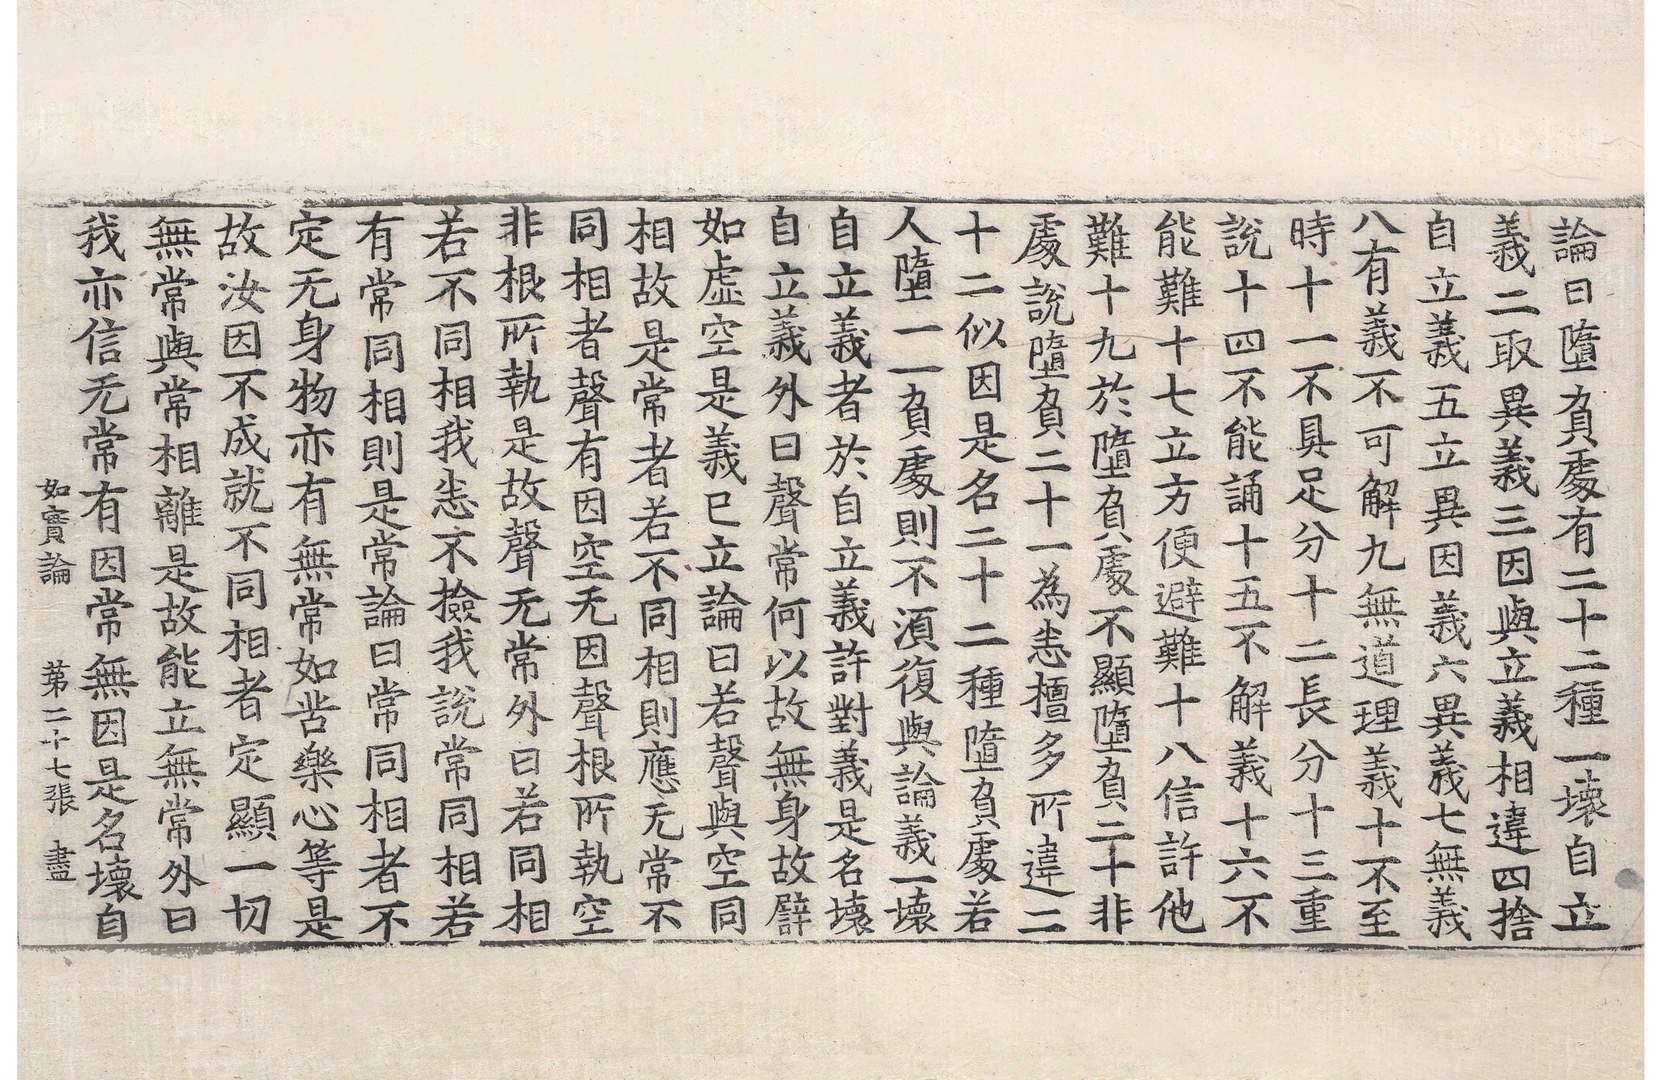 論曰墮負處有二十二種一壞自立
義二取異義三因與立義相違四捨
自立義五立異因義六異義七無義
八有義不可解九無道理義十不至
時十一不具足分十二長分十三重
說十四不能誦十五不解義十六不
能難十七立方便避難十八信許他
難十九於墮負處不顯墮負二十非
處說墮負二十一為恚檀多所違二
十二似因是名二十二種墮負處若
人墮一一負處則不湏復與論義一壞
自立義者於自立義許對義是名壞
自立義外曰聲常何以故無身故譬
如虛空是義已立論曰若聲與空同
相故是常者若不同相則應无常不
同相者聲有因空无因聲根所執空
非根所執是故聲无常外曰若同相
若不同相我悉不撿我說常同相若
有常同相則是常論曰常同相者不
定无身物亦有無常如苦樂心等是
故汝因不成就不同相者定顯一切
無常與常相離是故能立無常外曰
我亦信无常有因常無因是名壞自
如實論 苐二十七張 盡